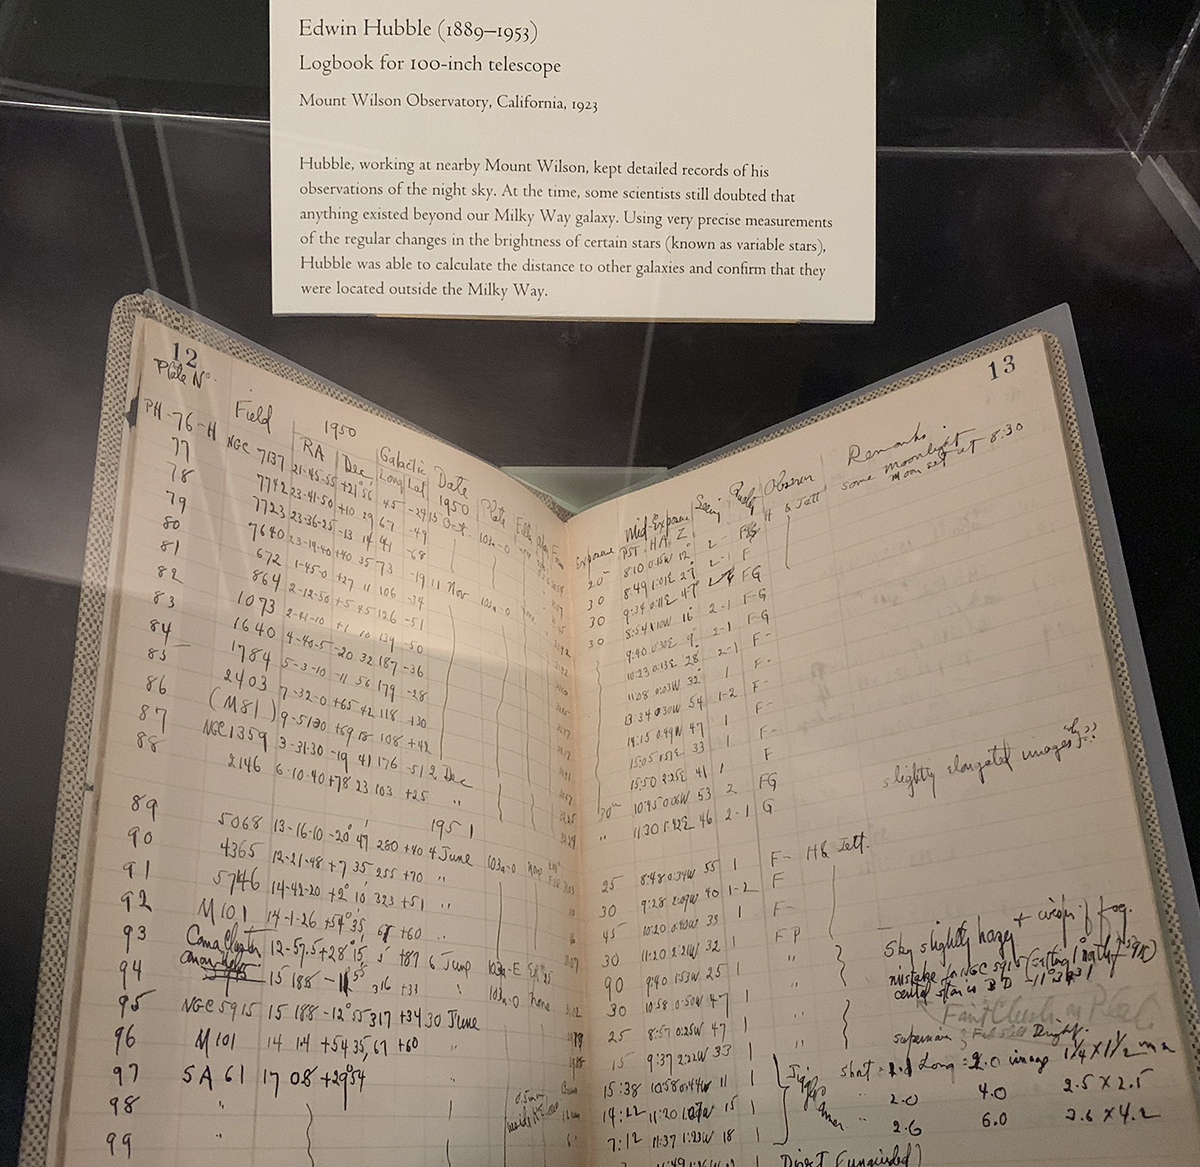 Edwin Hubble (1889–1953)
Logbook for 100-inch telescope
Mount Wilson Observatory, California, 1923
Hubble, working at nearby Mount Wilson, kept detailed records of his
observations of the night sky. At the time, some scientists still doubted that
anything existed beyond our Milky Way galaxy. Using very precise measurements
of the regular changes in the brightness of certain stars (known as variable stars),
Hubble was able to calculate the distance to other galaxies and confirm that they
were located outside the Milky Way.
12
Plate No.
Field
1950
RA Dec Galactic Long Lat Date 1950 Plate
PH-76-H NGC 7137 21-45-55 +21°56' 45 -24 15 Oct. 103a-O
77 7742 23-41-50 +10 29 67 -49
78 7723 23-36-25 -13 14 41 -68
79 7640 23-19-40 +40 35 73 -19 11 Nov 103a-O
80 672 1-45-0 +27 11 106 -34
81 864 2-12-50 +5 45 126 -51
82 1073 2-41-10 +1 10 139 -50
83 1640 4-40-5 -20 32 187 -36
84 1784 5-3-10 -11 56 179 -28
85 2403 7-32-0 +65 42 118 +30
86 (M81) 9-51-30 +69 18 108 +42
87 NGC 1359 3-31-30 -19 41 176 -51 2 Dec
88 2146 6-10-40 +78 23 103 +25 "
1951
89 5068 13-16-10 -20° 47' 280 +40 4 June 103a-O none
90 4365 12-21-48 +7 35 255 +70 "
91 5746 14-42-20 +2° 10' 323 +51 "
92 M101 14-1-26 +54° 35' 67 +60 "
93 Coma Cluster 12-57.5 +28° 15' 5 +87 6 June 103a-E
94 15 188 316 +33 " 103a-O none
95 NGC 5915 15 188 -12° 55' 317 +34 30 June
96 M101 14 1.4 +54 35, 67 +60 "
97 SA 61 17 08 +29° 54 "
98 "
99 "
13
Exposure Mid-Exposure PST HA Z Seeing Quality Observer Remarks
20m 8:10 0:15W 12° 2- FG H & Jett some moonlight
moon set at 8:30
30 8:49 1:01E 27° 2-1 F
30 9:34 0:11E 47°
30 8:54 16° 2-1 FG
9:40 0:30E 9° 2-1 F-G
10:23 0:13E 28° 2-1 F-
11:08 0:03W 32° 1 F-
13:34 0:30W 54 1-2 F-
14:15 0:49W 47 1 F-
15:05 1:51E 33 1 F-
15:50 2:25E 41 1 F
30m 10:45 0:06W 53 2 FG slightly elongated images
" 11:30 1:42E 46 2-1 G
25 8:48 0:34W 55 1 F- H & Jett.
30 9:28 2:09W 40 1-2 F
45 10:20 0:40W 33 1 F-
30 11:20 2:21W 32 1 F P Sky slightly hazy + wisps of fog.
90 9:40 1:53W 25 1 "
30 10:58 0:50W 47 1 " mistake for NGC 5915
central star is BD
25 8:57 0:25W 47 1 "
15 9:37 2:22W 33 1 "
15:38 10:58 0:44W 11 1 short = 2.1 Long = 2.0 image 1/4 X 1 1/2 mm
14:22 11:20 15 1 2.0 4.0 2.5 X 2.5
7:12 11:37 1:23W 18 1 2.6 6.0 2.6 X 4.2
Direct (unguided)